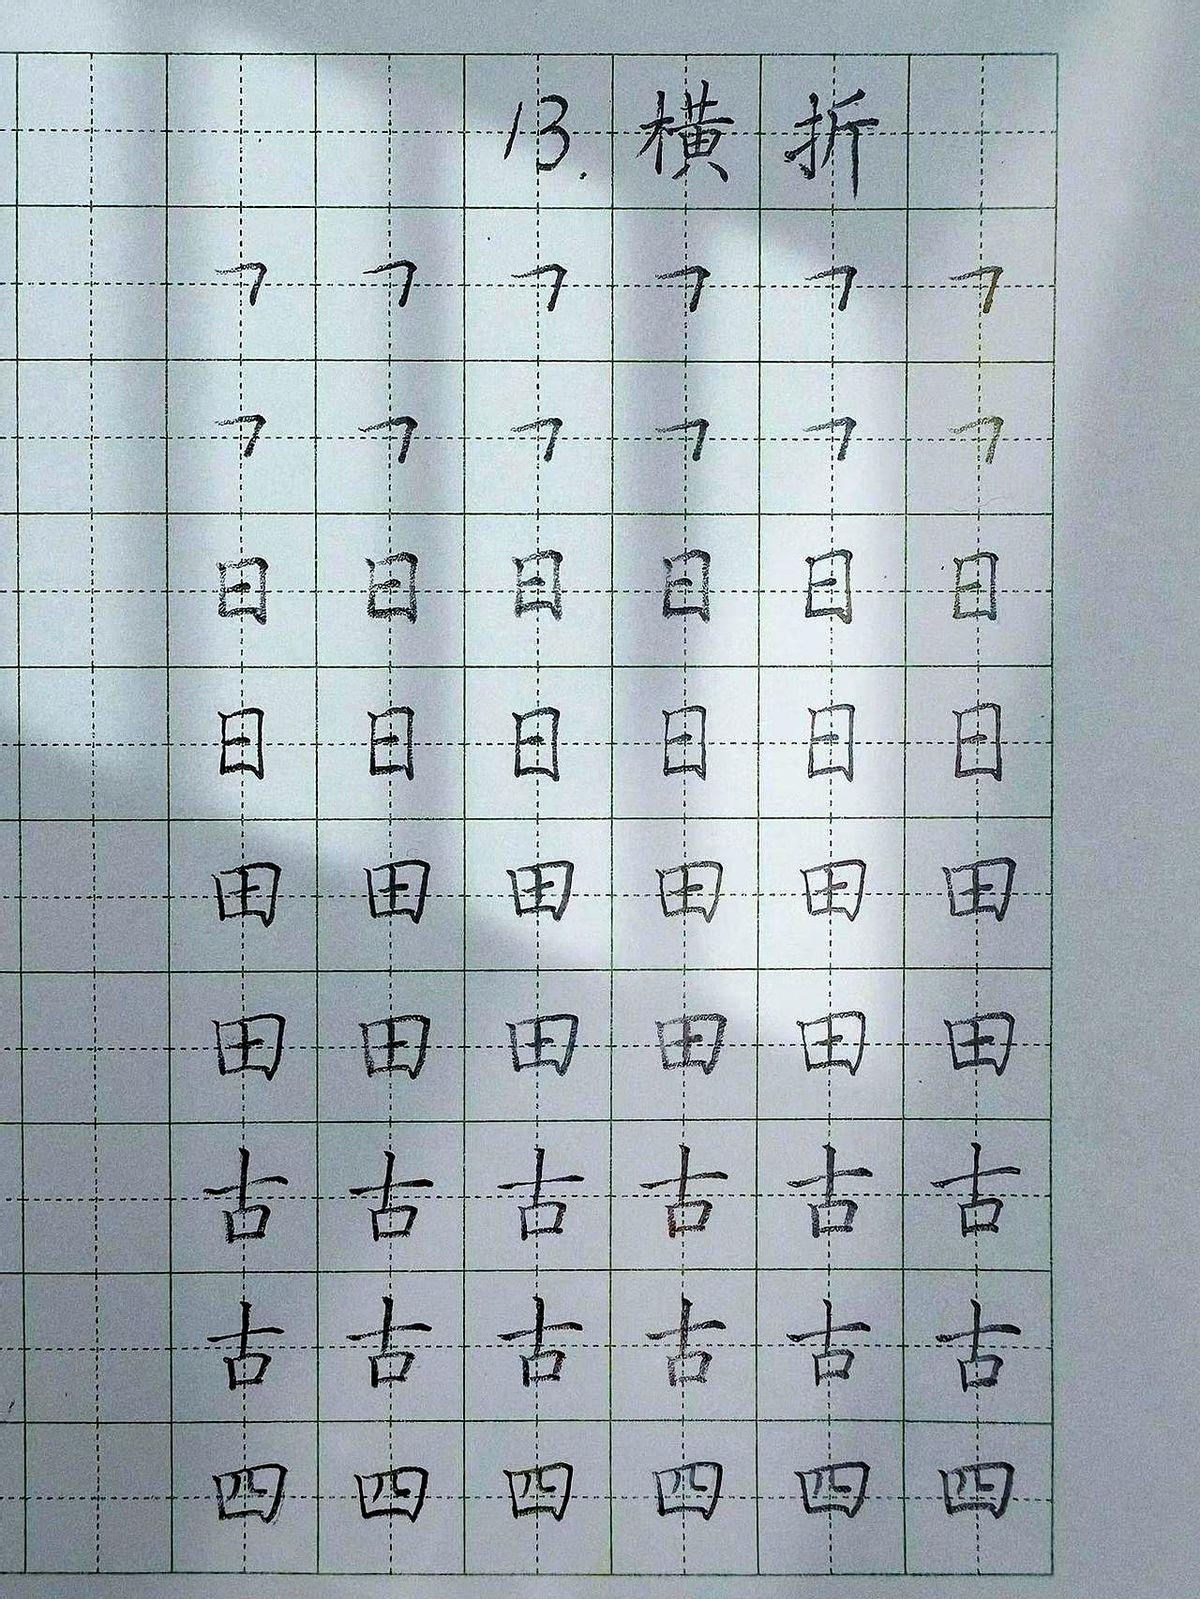 13. 横折
㇕ ㇕ ㇕ ㇕ ㇕ ㇕
㇕ ㇕ ㇕ ㇕ ㇕ ㇕
日 日 日 日 日 日
日 日 日 日 日 日
田 田 田 田 田 田
田 田 田 田 田 田
古 古 古 古 古 古
古 古 古 古 古 古
四 四 四 四 四 四